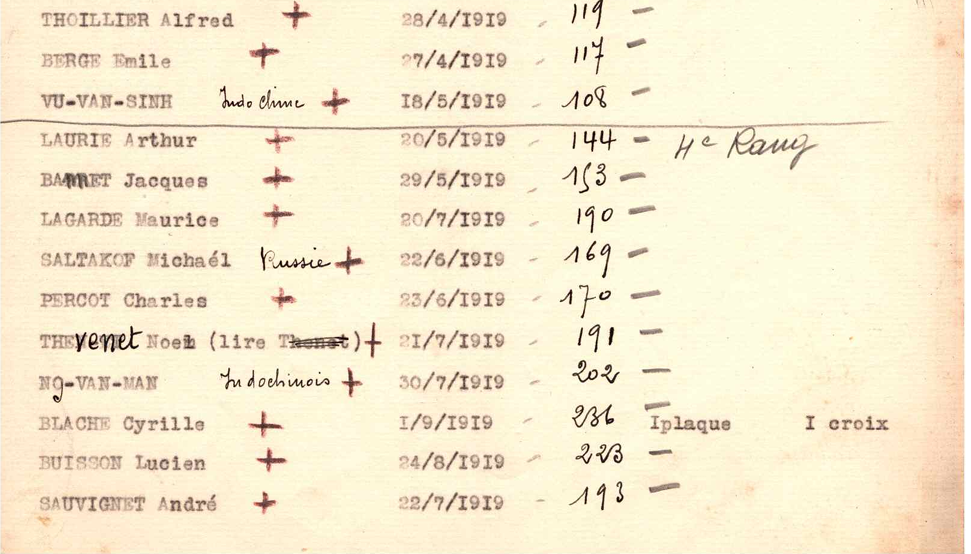 THOILLIER Alfred + 28/4/I9I9 - 119 -
BERGE Emile + 27/4/I9I9 - 117 -
VU-VAN-SINH Indo chine + I8/5/I9I9 - 108 -
LAURIE Arthur + 20/5/I9I9 - 144 - 4e Rang
BARRET Jacques + 29/5/I9I9 - 153 -
LAGARDE Maurice + 20/7/I9I9 - 190 -
SALTAKOF Michaél Russie + 22/6/I9I9 - 169 -
PERCOT Charles + 23/6/I9I9 - 170 -
THEvenet Noel (lire Thenet) + 2I/7/I9I9 - 191 -
Ng-VAN-MAN Indochinois + 30/7/I9I9 - 202 -
BLACHE Cyrille + I/9/I9I9 - 236 - Iplaque I croix
BUISSON Lucien + 24/8/I9I9 - 223 -
SAUVIGNET André + 22/7/I9I9 - 193 -